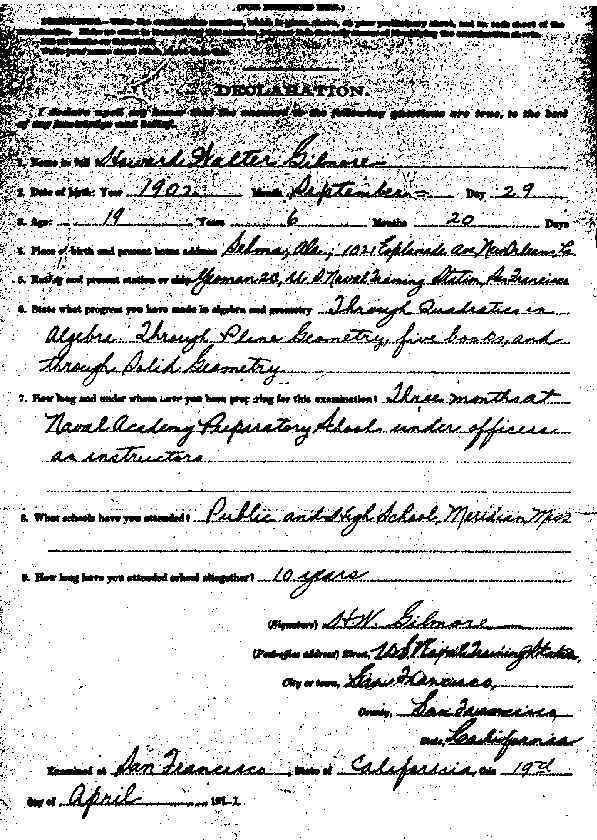 DECLARATION.
I declare upon my honor that the answers to the following questions are true, to the best
of my knowledge and belief.
1. Name in full Howard Walter Gilmore
2. Date of birth: Year 1902 Month September Day 29
3. Age: 19 Years 6 Months 20 Days
4. Place of birth and present home address Selma, Ala.; 1021 Esplanade Ave New Orleans La
5. Rating and present station or ship Yeoman 2c, U S Naval Training Station San Francisco
6. State what progress you have made in algebra and geometry Through Quadratics in
Algebra. Through Plane Geometry, five books, and
through Solid Geometry
7. How long and under whom have you been preparing for this examination? Three months at
Naval Academy Preparatory School under officers
as instructors
8. What schools have you attended? Public and High School, Meridian, Miss
9. How long have you attended school altogether? 10 years
(Signature) H.W. Gilmore
(Post-office address) Street, U S Naval Training Station,
City or town, San Francisco,
County, San Francisco
State, California
Examined at San Francisco, State of California, this 19th
day of April